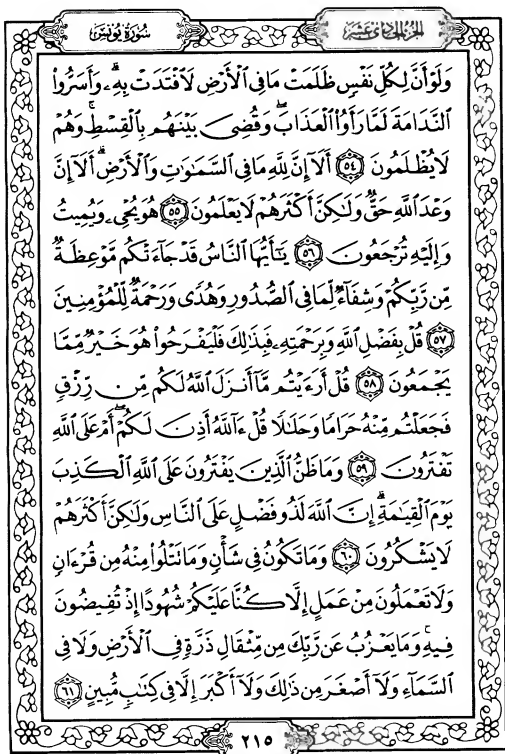 الجزء الحادي عشر
سورة يونس
وَلَوْ أَنَّ لِكُلِّ نَفْسٍ ظَلَمَتْ مَا فِي الْأَرْضِ لَافْتَدَتْ بِهِۦ ۗ وَأَسَرُّوا۟
النَّدَامَةَ لَمَّا رَأَوُا۟ الْعَذَابَ ۖ وَقُضِىَ بَيْنَهُم بِالْقِسْطِ ۚ وَهُمْ
لَا يُظْلَمُونَ ٥٤ أَلَآ إِنَّ لِلَّهِ مَا فِي السَّمَٰوَٰتِ وَالْأَرْضِ ۗ أَلَآ إِنَّ
وَعْدَ اللَّهِ حَقٌّ وَلَٰكِنَّ أَكْثَرَهُمْ لَا يَعْلَمُونَ ٥٥ هُوَ يُحْيِۦ وَيُمِيتُ
وَإِلَيْهِ تُرْجَعُونَ ٥٦ يَٰٓأَيُّهَا النَّاسُ قَدْ جَآءَتْكُم مَّوْعِظَةٌ
مِّن رَّبِّكُمْ وَشِفَآءٌ لِّمَا فِي الصُّدُورِ وَهُدًى وَرَحْمَةٌ لِّلْمُؤْمِنِينَ
٥٧ قُلْ بِفَضْلِ اللَّهِ وَبِرَحْمَتِهِۦ فَبِذَٰلِكَ فَلْيَفْرَحُوا۟ هُوَ خَيْرٌ مِّمَّا
يَجْمَعُونَ ٥٨ قُلْ أَرَءَيْتُم مَّآ أَنزَلَ اللَّهُ لَكُم مِّن رِّزْقٍ
فَجَعَلْتُم مِّنْهُ حَرَامًا وَحَلَٰلًا قُلْ ءَآللَّهُ أَذِنَ لَكُمْ ۖ أَمْ عَلَى اللَّهِ
تَفْتَرُونَ ٥٩ وَمَا ظَنُّ الَّذِينَ يَفْتَرُونَ عَلَى اللَّهِ الْكَذِبَ
يَوْمَ الْقِيَٰمَةِ ۗ إِنَّ اللَّهَ لَذُو فَضْلٍ عَلَى النَّاسِ وَلَٰكِنَّ أَكْثَرَهُمْ
لَا يَشْكُرُونَ ٦٠ وَمَا تَكُونُ فِي شَأْنٍ وَمَا تَتْلُوا۟ مِنْهُ مِن قُرْءَانٍ
وَلَا تَعْمَلُونَ مِنْ عَمَلٍ إِلَّا كُنَّا عَلَيْكُمْ شُهُودًا إِذْ تُفِيضُونَ
فِيهِ ۚ وَمَا يَعْزُبُ عَن رَّبِّكَ مِن مِّثْقَالِ ذَرَّةٍ فِي الْأَرْضِ وَلَا فِي
السَّمَآءِ وَلَآ أَصْغَرَ مِن ذَٰلِكَ وَلَآ أَكْبَرَ إِلَّا فِي كِتَٰبٍ مُّبِينٍ ٦١
٢١٥